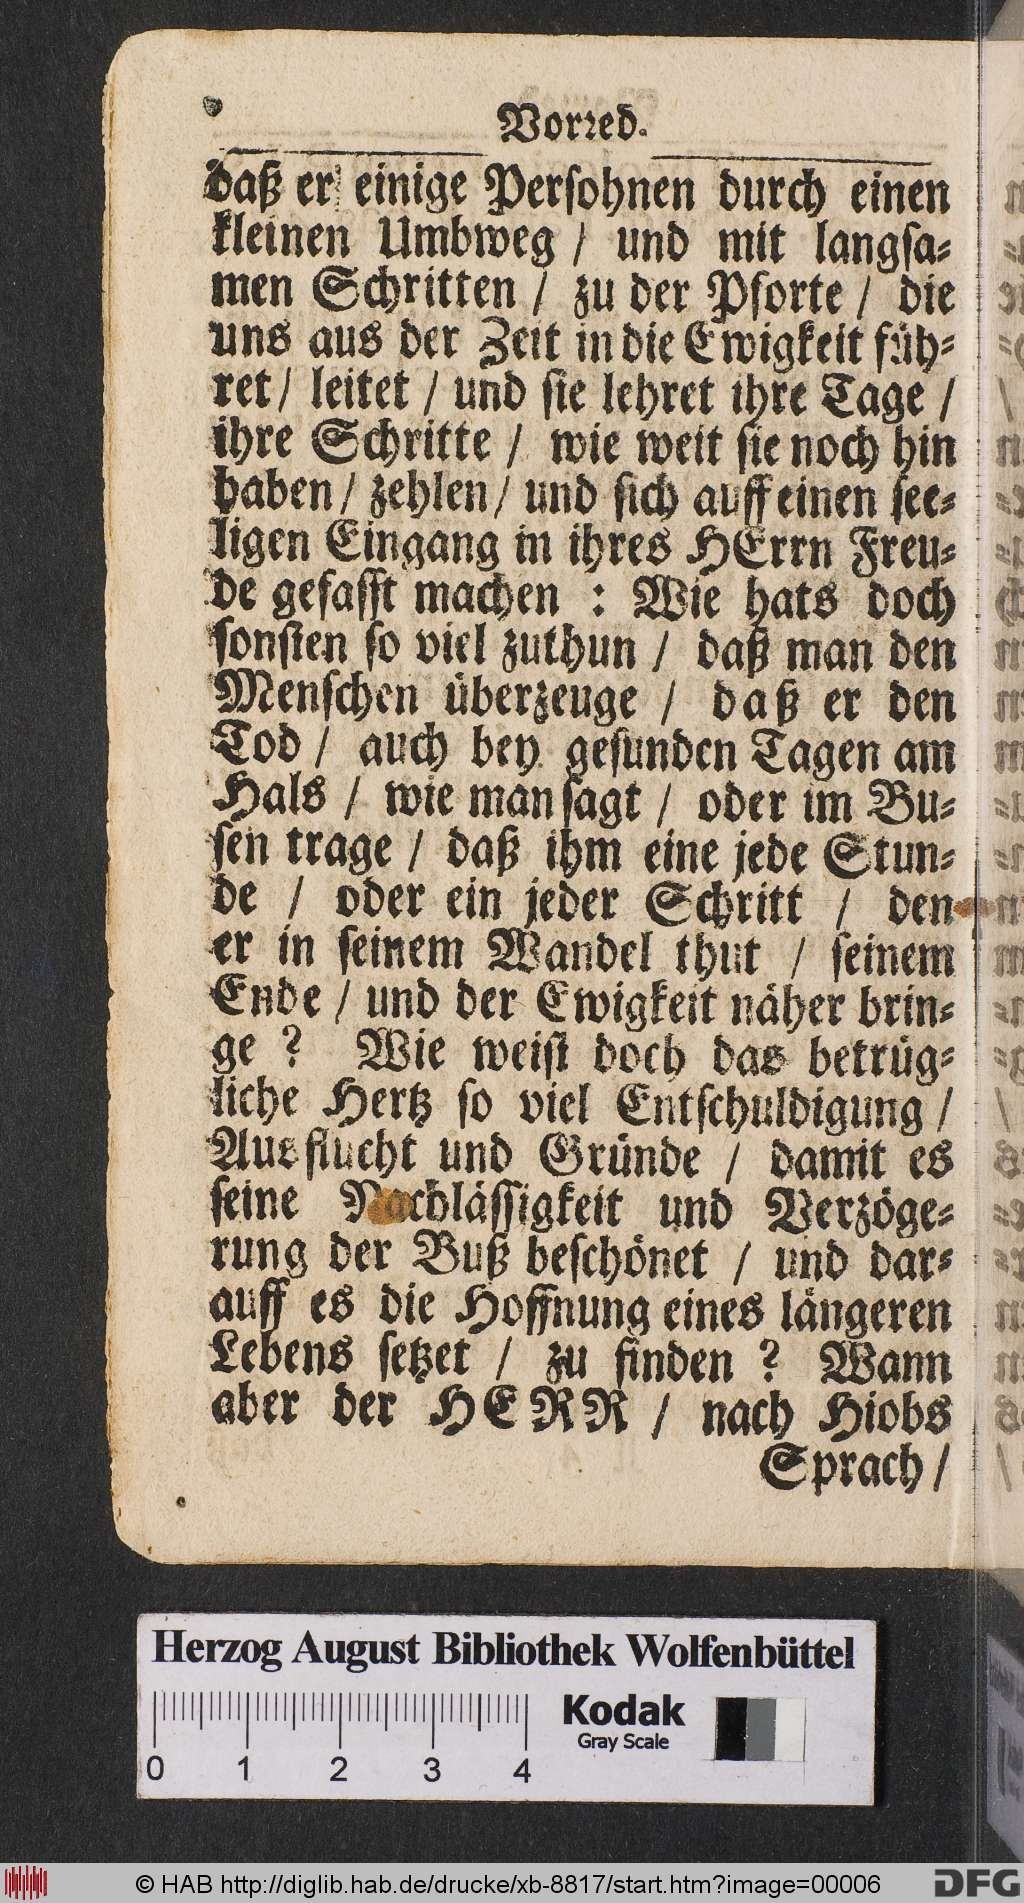 Vorred.
daß er einige Persohnen durch einen
kleinen Umbweg / und mit langsa⸗
men Schritten / zu der Pforte / die
uns aus der Zeit in die Ewigkeit füh⸗
ret / leitet / und sie lehret ihre Tage /
ihre Schritte / wie weit sie noch hin
haben / zehlen / und sich auff einen see⸗
ligen Eingang in ihres HErrn Freu⸗
de gefasst machen : Wie hats doch
sonsten so viel zuthun / daß man den
Menschen überzeuge / daß er den
Tod / auch bey gesunden Tagen am
Hals / wie man sagt / oder im Bu⸗
sen trage / daß ihm eine jede Stun⸗
de / oder ein jeder Schritt / den
er in seinem Wandel thut / seinem
Ende / und der Ewigkeit näher brin⸗
ge ? Wie weist doch das betrüg⸗
liche Hertz so viel Entschuldigung /
Ausflucht und Gründe / damit es
seine Nachlässigkeit und Verzöge⸗
rung der Buß beschönet / und dar⸗
auff es die Hoffnung eines längeren
Lebens setzet / zu finden ? Wann
aber der HERR / nach Hiobs
Sprach /
Herzog August Bibliothek Wolfenbüttel
Kodak
Gray Scale
0 1 2 3 4
© HAB http://diglib.hab.de/drucke/xb-8817/start.htm?image=00006
DFG